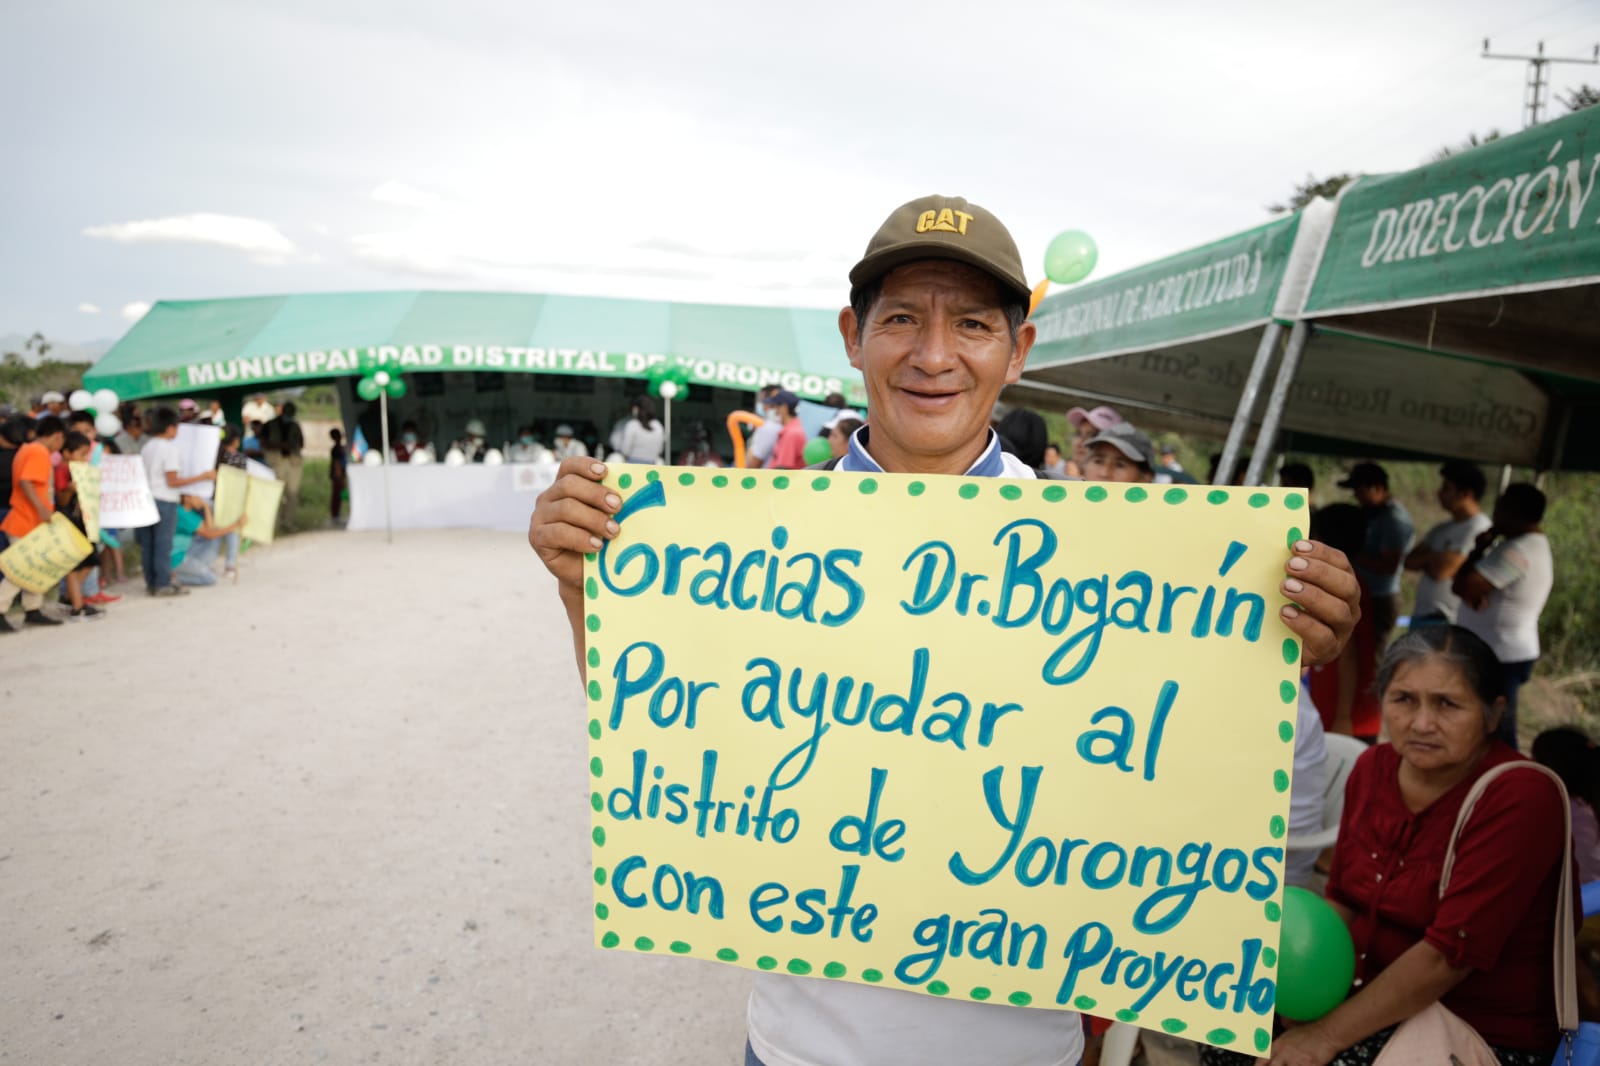 CAT
DIRECCIÓN
REGIONAL DE AGRICULTURA
MUNICIPALIDAD DISTRITAL DE YORONGOS
Gracias Dr. Bogarín
Por ayudar al
distrito de Yorongos
con este gran Proyecto
Gobierno Regional de San